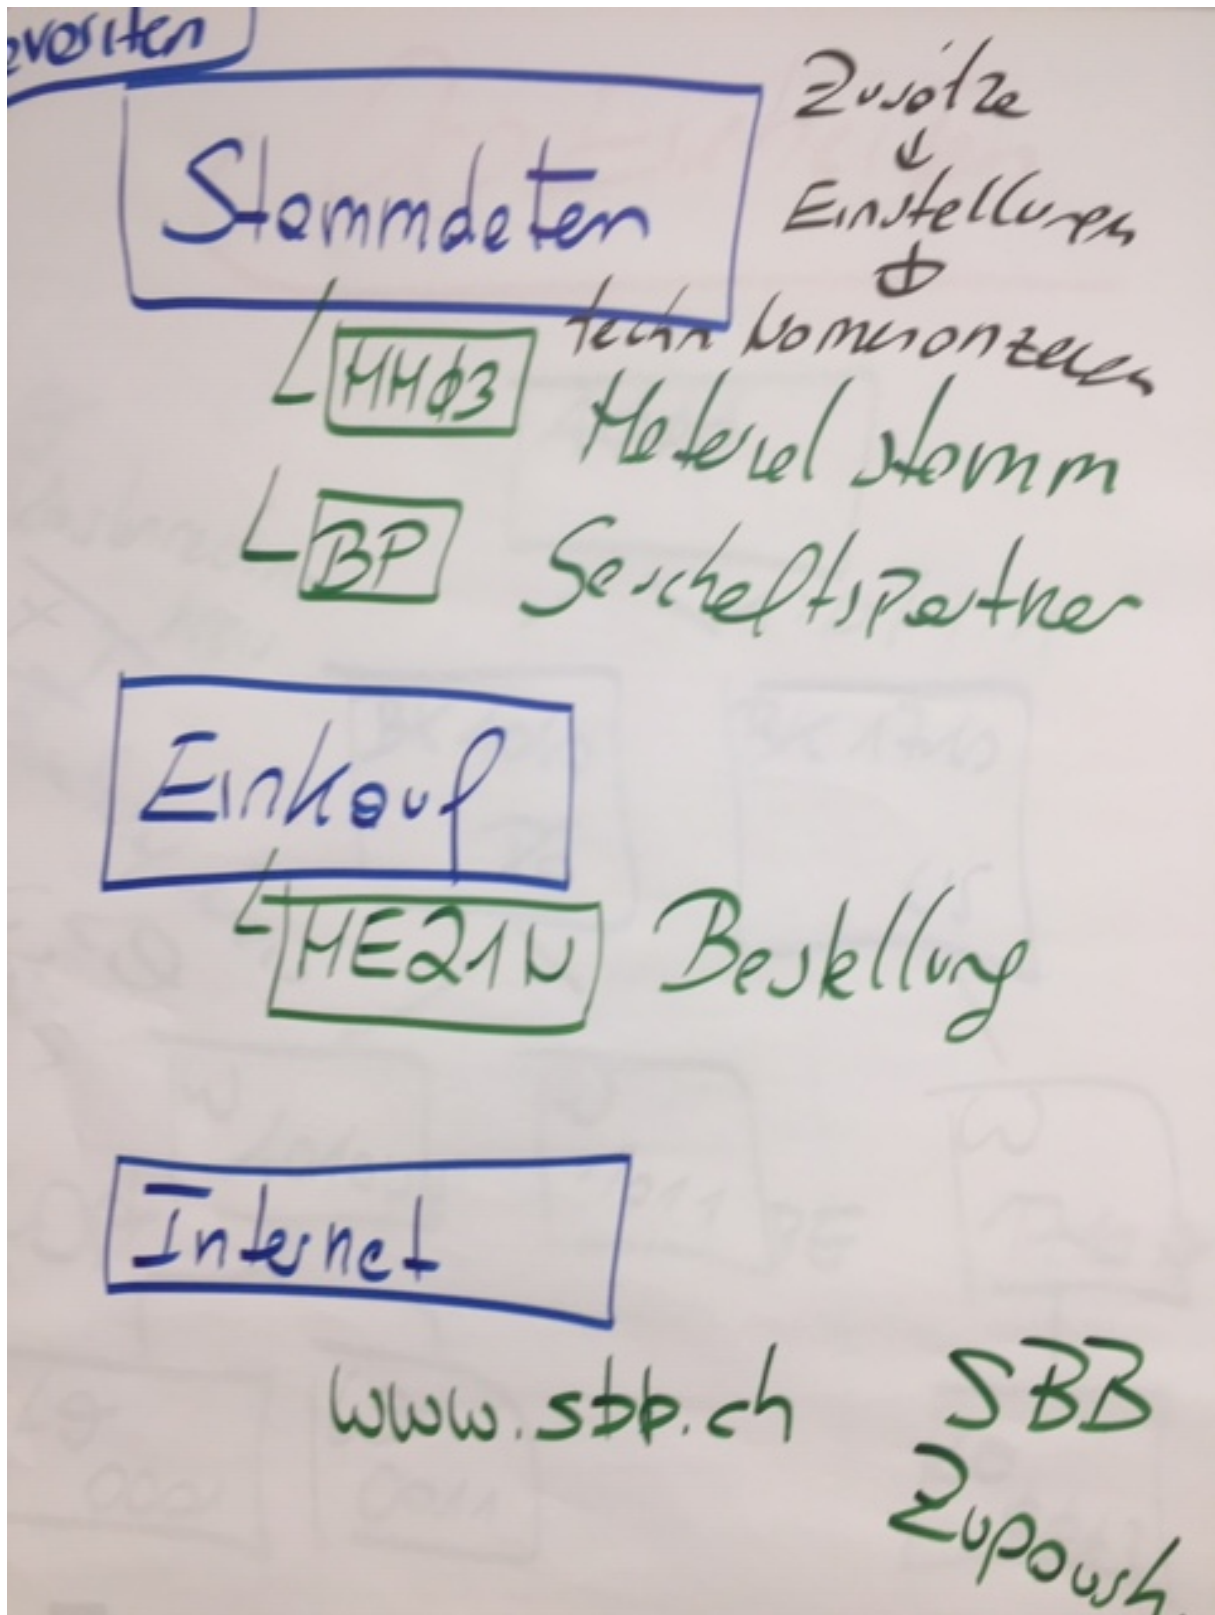 Favoriten
Stammdaten
Zusätze
↓
Einstellungen
↓
techn Namen anzeigen
MM03 Materialstamm
BP Geschäftspartner
Einkauf
ME21N Bestellung
Internet
www.sbb.ch SBB
Zugausk.